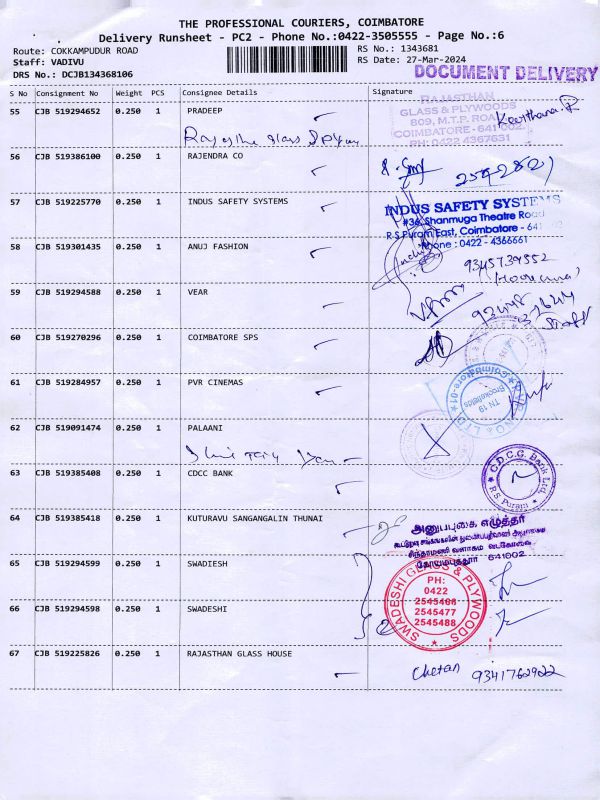 THE PROFESSIONAL COURIERS, COIMBATORE
Delivery Runsheet - PC2 - Phone No.:0422-3505555 - Page No.:6
Route: COKKAMPUDUR ROAD
RS No.: 1343681
Staff: VADIVU
RS Date: 27-Mar-2024
DRS No.: DCJB134368106
DOCUMENT DELIVERY
S No Consignment No Weight PCS Consignee Details Signature
55 CJB 519294652 0.250 1 PRADEEP
RAJASTHAN
GLASS & PLYWOODS
809, M.T.P. ROAD
COIMBATORE - 641 002.
PH: 0422 4367631
Keerthana.R
56 CJB 519386100 0.250 1 RAJENDRA CO
57 CJB 519225770 0.250 1 INDUS SAFETY SYSTEMS
INDUS SAFETY SYSTEMS
#36, Shanmuga Theatre Road
R S Puram East, Coimbatore - 641
Phone : 0422 - 4366661
58 CJB 519301435 0.250 1 ANUJ FASHION
9345739552
59 CJB 519294588 0.250 1 VEAR
60 CJB 519270296 0.250 1 COIMBATORE SPS
61 CJB 519284957 0.250 1 PVR CINEMAS
Coimbatore-01
TN 19
Brookefields
62 CJB 519091474 0.250 1 PALAANI
63 CJB 519385408 0.250 1 CDCC BANK
C.D.C.C. Bank Ltd.
R.S. Puram
64 CJB 519385418 0.250 1 KUTURAVU SANGANGALIN THUNAI
அனுபபுகை எழுத்தர்
641002
65 CJB 519294599 0.250 1 SWADIESH
SWADESHI GLASS & PLYWOODS
PH:
0422
2545466
2545477
2545488
66 CJB 519294598 0.250 1 SWADESHI
67 CJB 519225826 0.250 1 RAJASTHAN GLASS HOUSE
Chetan 9341762922